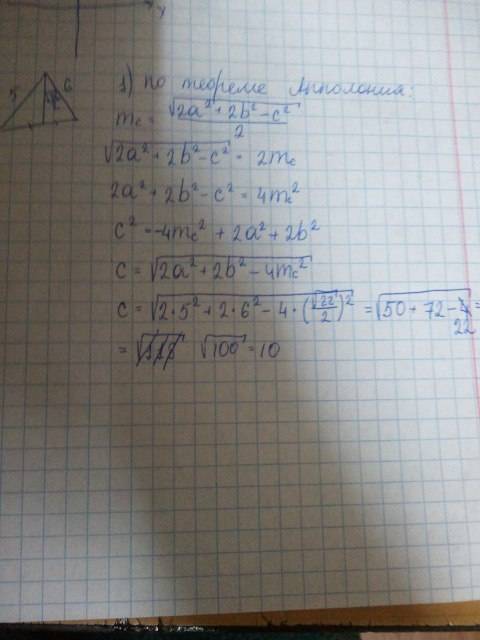 y
5 6
1) по теореме Апполония:
m_c = √(2a² + 2b² − c²) / 2
√(2a² + 2b² − c²) = 2m_c
2a² + 2b² − c² = 4m_c²
c² = −4m_c² + 2a² + 2b²
c = √(2a² + 2b² − 4m_c²)
c = √(2·5² + 2·6² − 4·(√22/2)²) = √(50 + 72 − 22) =
= √100 = 10